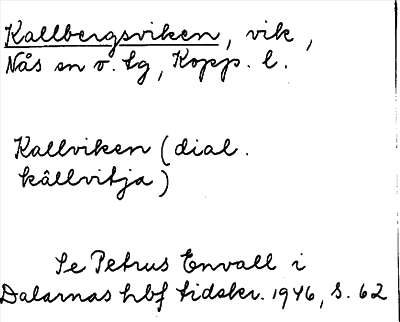 Kallbergsviken, vik,
Nås sn o. tg, Kopp. l.
Kallviken (dial.
kâllvitja)
Se Petrus Envall i
Dalarnas hbf tidskr. 1946, s. 62